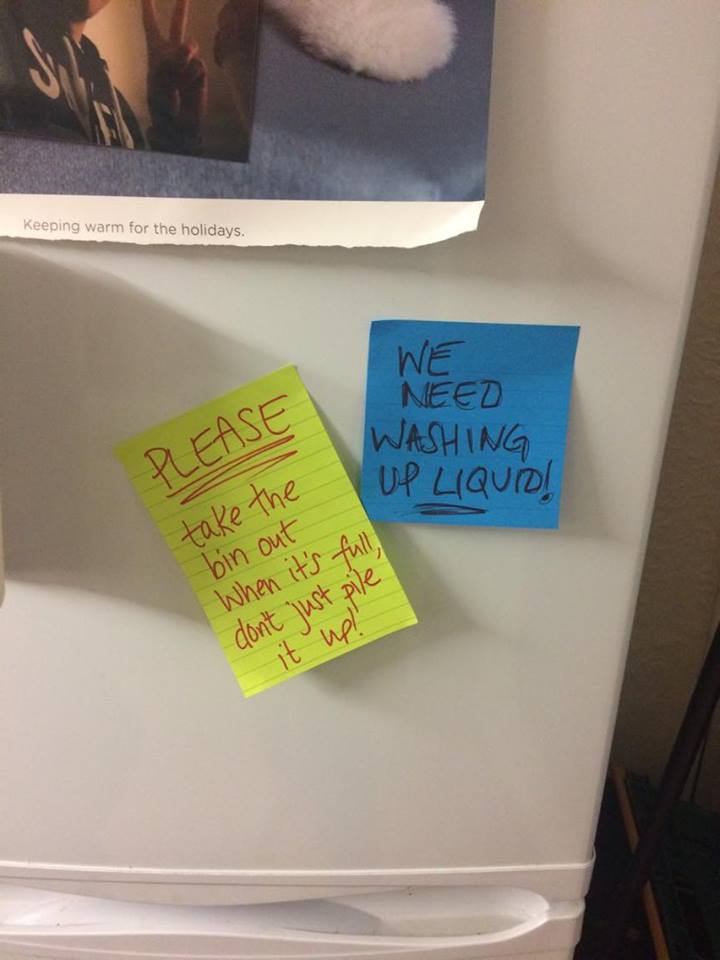 Keeping warm for the holidays.
WE
NEED
WASHING
UP LIQUID!
PLEASE
take the
bin out
when it's full,
don't just pile
it up!